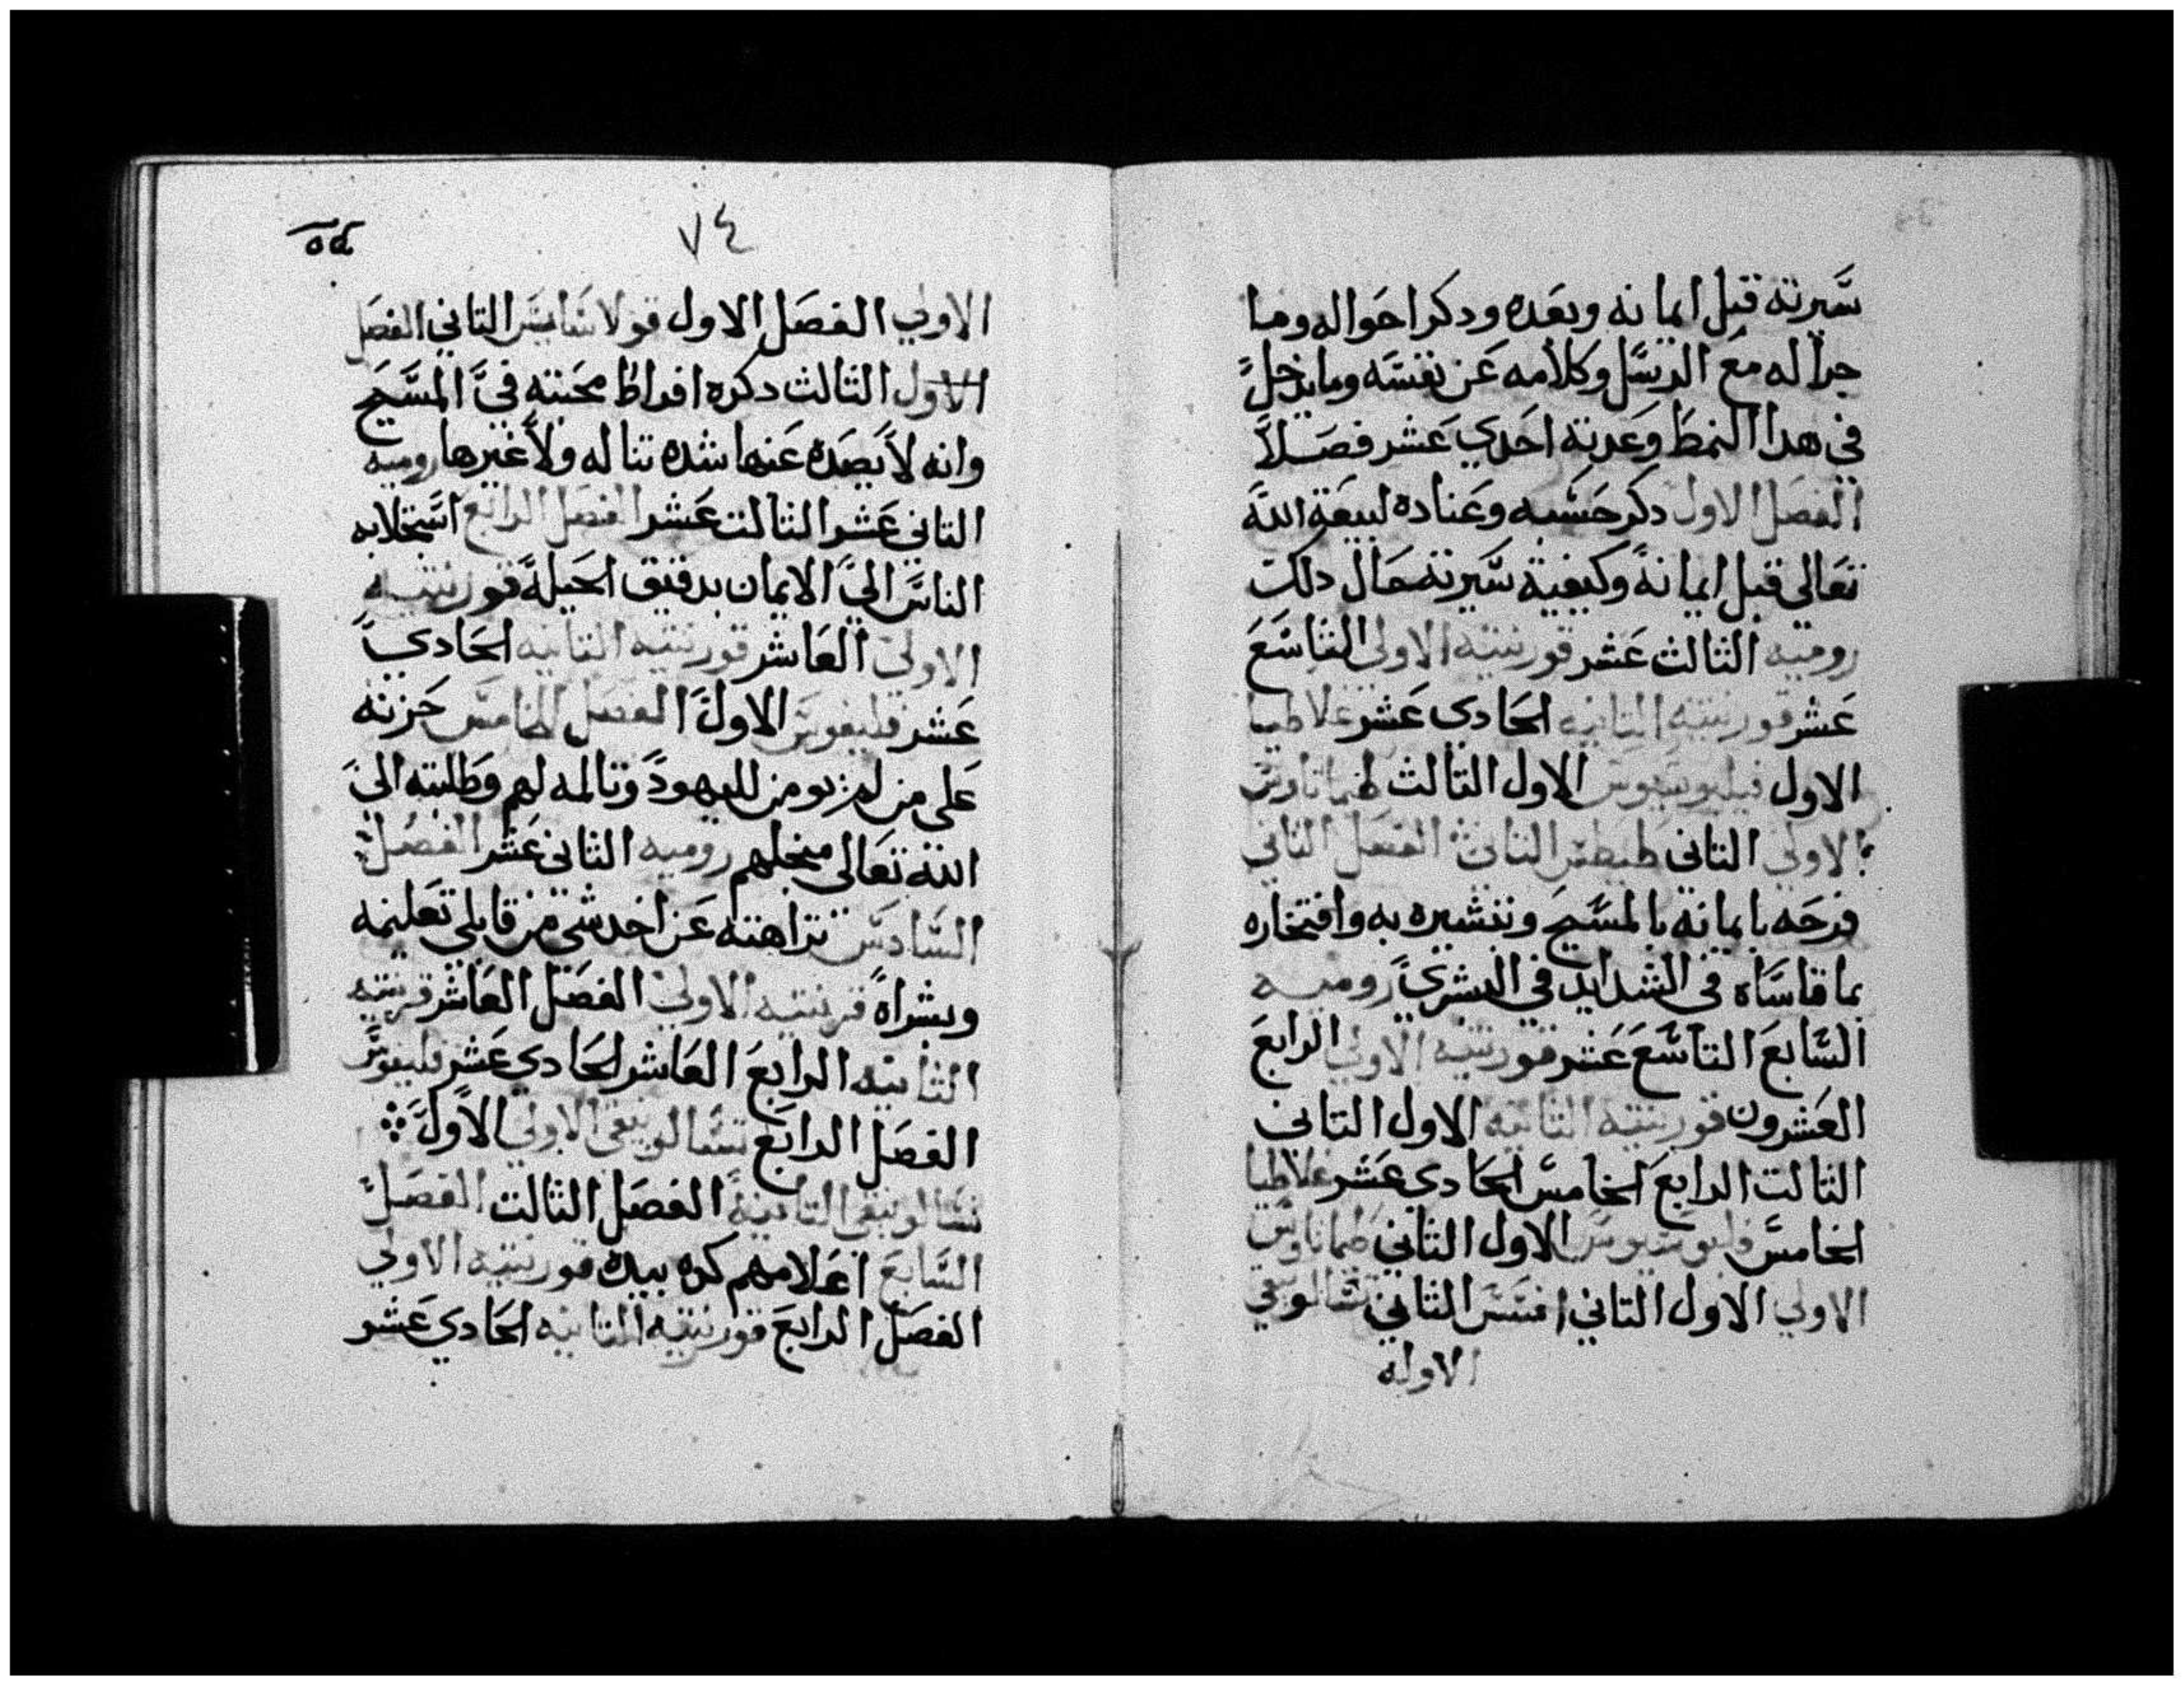 سيرته قبل ايمانه وبعده ودكر احواله وما
جرا له مع الرسل وكلامه عن نفسه وما يدخل
في هدا النمط وعدته احدي عشر فصلاً
الفصل الاول دكر حسبه وعناده لبيعة الله
تعالي قبل ايمانه وكيفية سيرته حال دلك
روميه الثالث عشر قورنتيه الاولي التاسع
عشر قورنتيه التانيه الحادى عشر غلاطيا
الاول فيليبوسيوس الاول الثالث طيماتاوس
الاولي الثاني طيطس الثالث الفصل الثاني
فرحه بايمانه بالمسيح وتبشيره به وافتخاره
بما قاساه في الشدايد في البشري روميه
السابع التاسع عشر قورنتيه الاولي الرابع
العشرون قورنتيه الثانيه الاول التاني
الثالت الرابع الخامس الحادى عشر غلاطيا
الخامس الاول الثاني طيماتاوس
الاولي الاول التاني افسس الثاني تسالونيقي
الاوله
٧٤
الاولي الفصل الاول قولاسايس التاني الفصل
الاول الثالث دكره افراط محبته في المسيح
وانه لا يصده عنها شده تناله ولا غيرها روميه
التاني عشر الثالت عشر الفصل الرابع استجلابه
الناس الي الايمان بدقيق الحيله قورنتيه
الاولي العاشر قورنتيه الثانيه الحادي
عشر فليفوس الاول الفصل الخامس حزنه
علي من لم يومن لليهود وتالمه لهم وطلبته الي
الله تعالي منجلهم روميه الثاني عشر الفصل
السادس نزاهته عن اخد شي من قابلي تعليمه
وبشراه قرنتيه الاولي الفصل العاشر قرنتيه
الثانيه الرابع العاشر الحادى عشر فليفوس
الفصل الرابع تسالونيقي الاولي الاول
تسالونيقي التانية الفصل الثالت الفصل
السابع اعلامهم كده بيده قورنتيه الاولي
الفصل الرابع قورنتيه الثانيه الحادي عشر